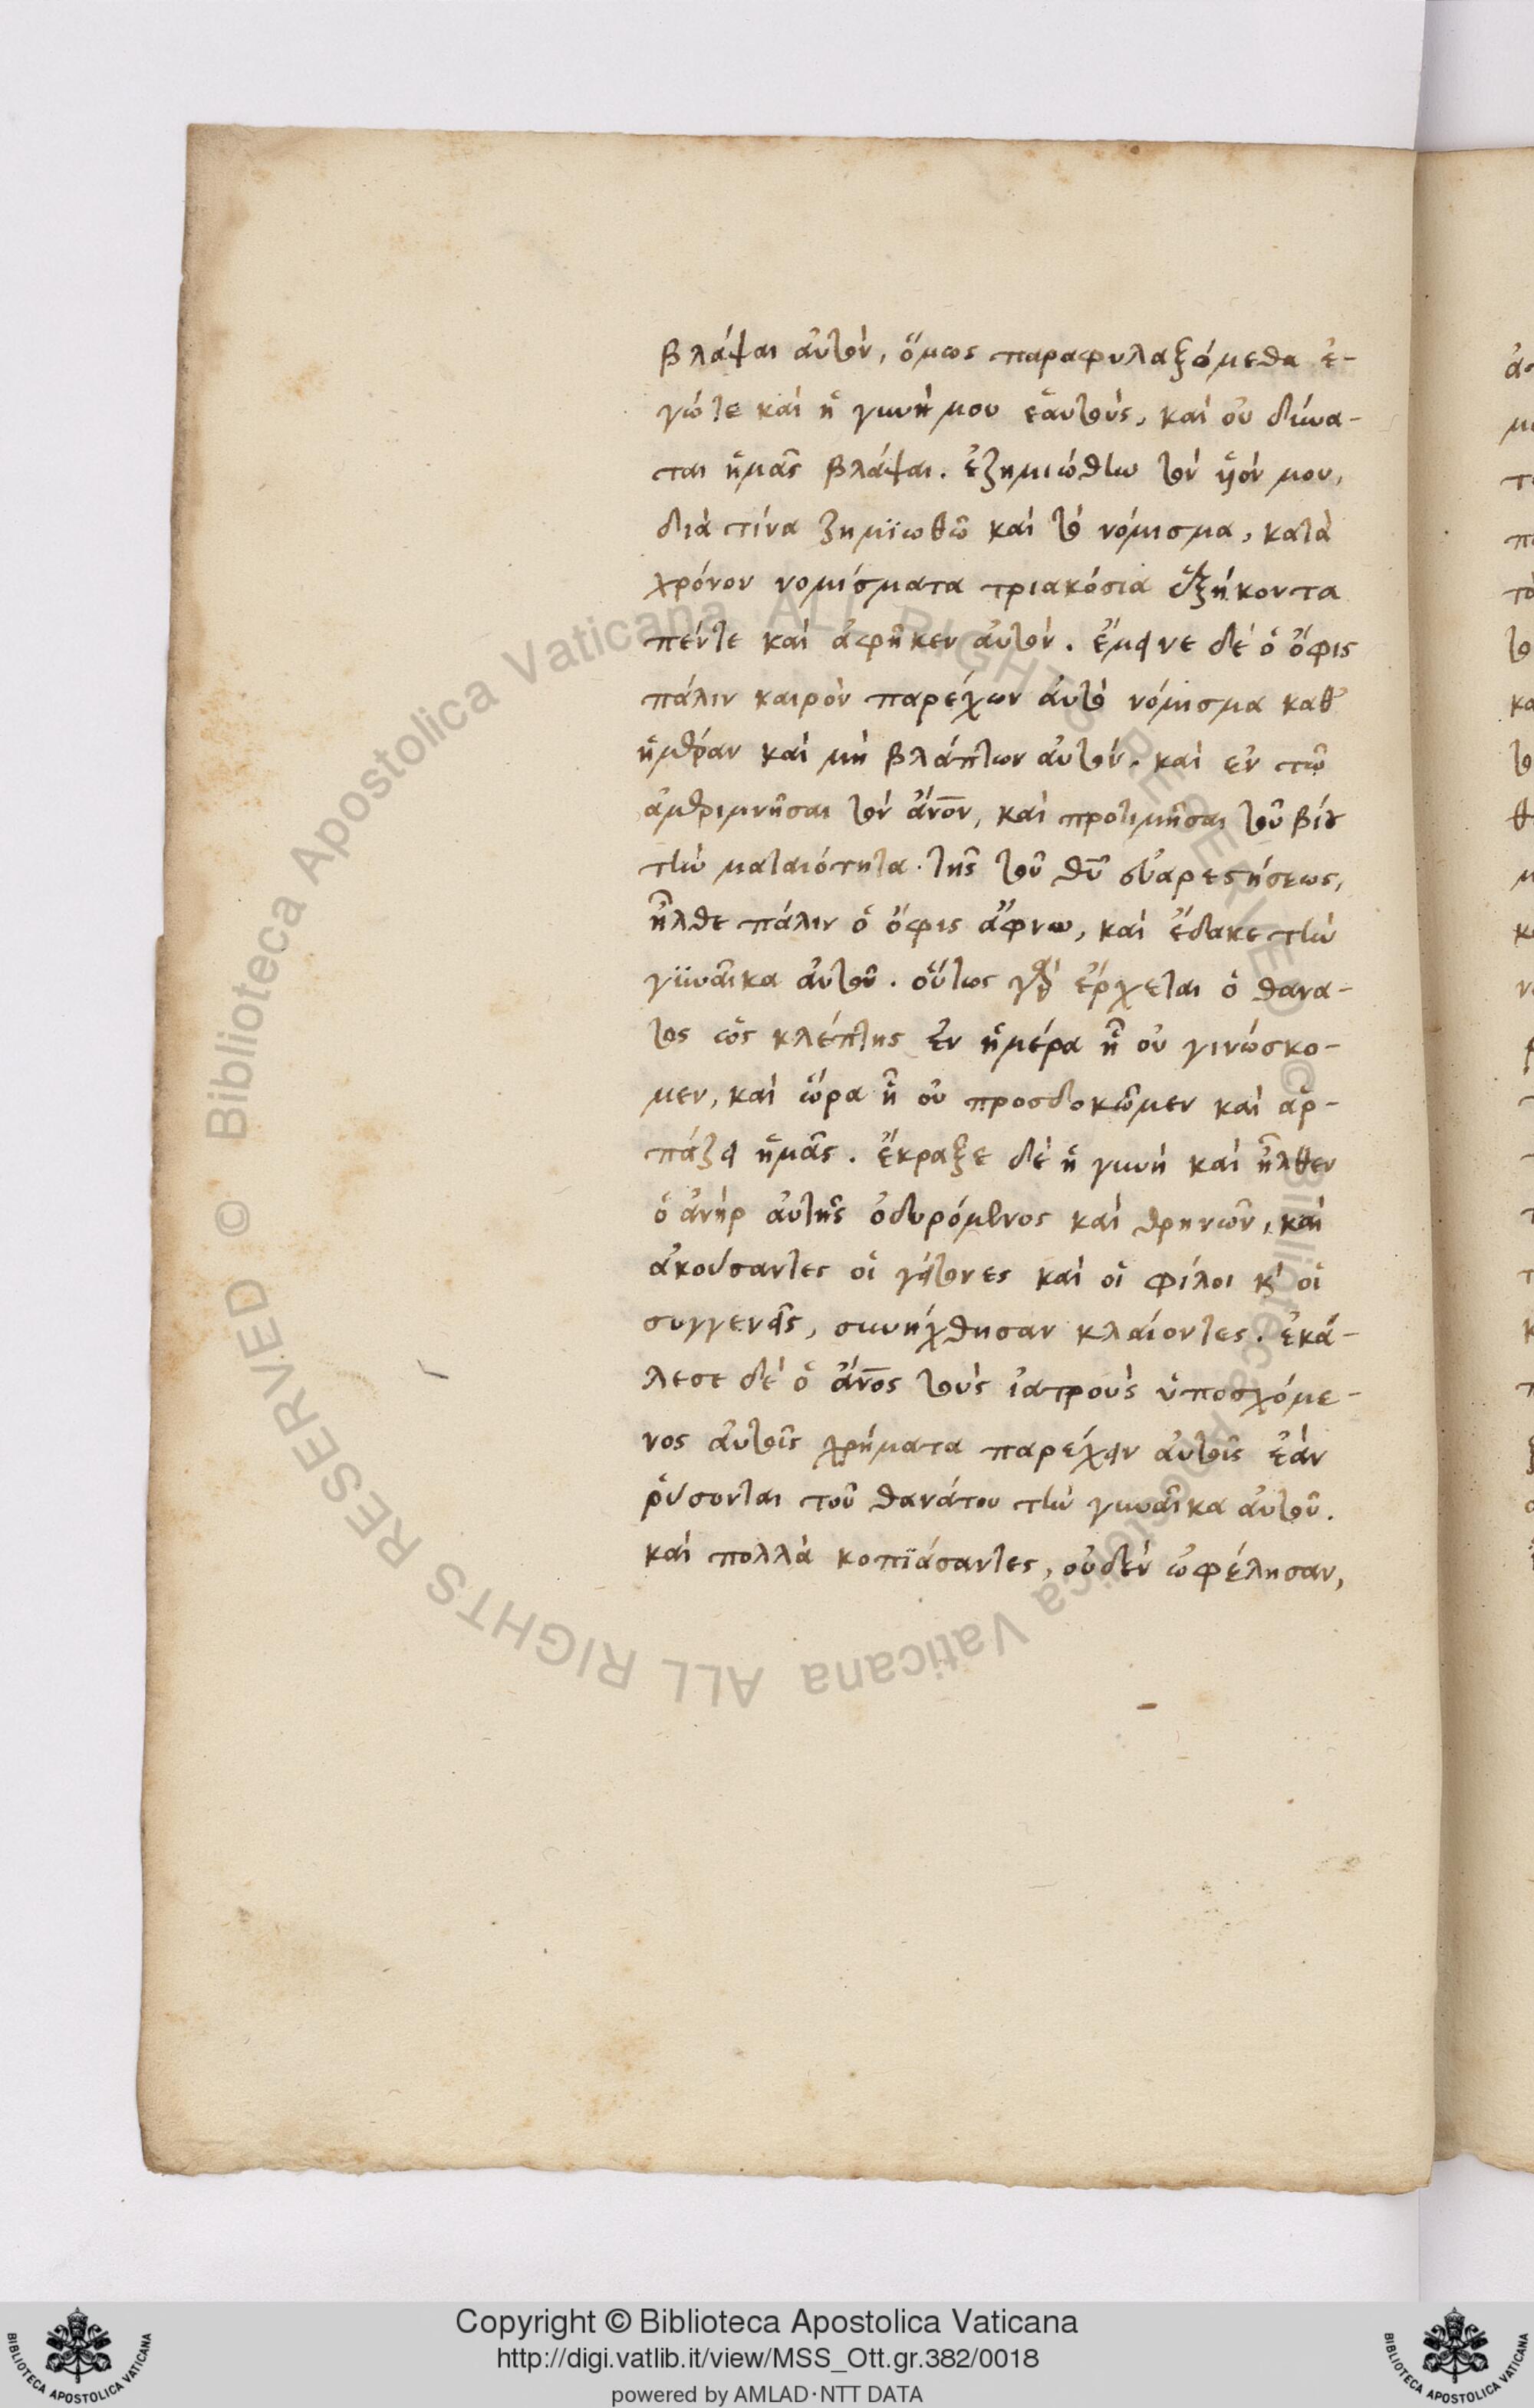 βλάψαι αὐτὸν, ὅμως παραφυλαξόμεθα ἐ-
γώ τε καὶ ἡ γυνή μου ἑαυτοὺς, καὶ οὐ δύνα-
ται ἡμᾶς βλάψαι. ἐζημιώθην τὸν ὑόν μου,
διὰ τίνα ζημϊωθῶ καὶ τὸ νόμισμα, κατὰ
χρόνον νομίσματα τριακόσια ἑξήκοντα
πέντε καὶ ἀφῆκεν αὐτὸν. ἔμεινε δὲ ὁ ὄφις
πάλιν καιρὸν παρέχων αὐτὸ νόμισμα καθ'
ἡμέραν καὶ μὴ βλάπτων αὐτὸν. καὶ ἐν τῶ
ἀμεριμνῆσαι τὸν ἄνον, καὶ προτιμῆσαι τοῦ βίου
τὴν ματαιότητα. τῆς τοῦ θῦ εὐαρεστήσεως,
ἦλθε πάλιν ὁ ὄφις ἄφνω, καὶ ἔδακε τὴν
γϋναῖκα αὐτοῦ. οὕτως γὰρ ἔρχεται ὁ θανα-
τος ὡς κλέπτης ἐν ἡμέρα ἧ οὐ γινώσκο-
μεν, καὶ ὥρα ἧ οὐ προσδοκῶμεν καὶ ἁρ-
πάζει ἡμᾶς. ἔκραξε δὲ ἡ γυνὴ καὶ ἦλθεν
ὁ ἀνὴρ αὐτῆς ὀδυρόμενος καὶ θρηνῶν, καὶ
ἀκούσαντες οἱ γείτονες καὶ οἱ φίλοι κ' οἱ
συγγενεῖς, συνήχθησαν κλαίοντες. ἐκά-
λεσε δὲ ὁ ἄνος τοὺς ἰατροὺς ὑποσχόμε-
νος αὐτοῖς χρήματα παρέχειν αὐτοῖς ἐάν
ῥύσονται τοῦ θανάτου τὴν γυναῖκα αὐτοῦ.
καὶ πολλὰ κοπϊάσαντες, οὐδὲν ὠφέλησαν,
Copyright © Biblioteca Apostolica Vaticana
http://digi.vatlib.it/view/MSS_Ott.gr.382/0018
powered by AMLAD·NTT DATA
© Biblioteca Apostolica Vaticana ALL RIGHTS RESERVED
© Biblioteca Apostolica Vaticana ALL RIGHTS RESERVED
BIBLIOTECA APOSTOLICA VATICANA
BIBLIOTECA APOSTOLICA VATICANA